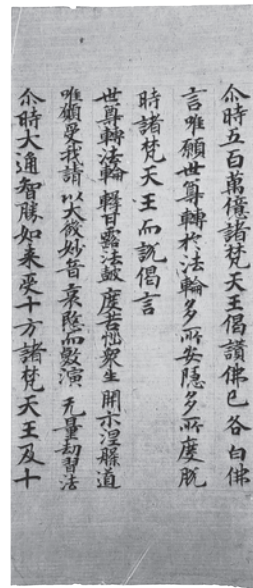 尒時五百萬億諸梵天王偈讚佛已各白佛
言唯願世尊轉於法輪多所安隱多所度脫
時諸梵天王而說偈言
世尊轉法輪 擊甘露法鼓 度苦惱衆生 開示涅槃道
唯願受我請 以大微妙音 哀愍而敷演 无量劫習法
尒時大通智勝如来受十方諸梵天王及十